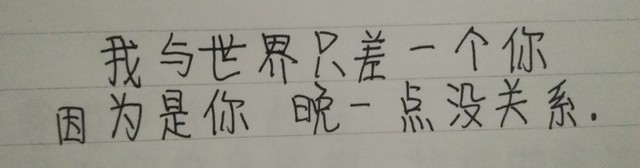 我与世界只差一个你
因为是你 晚一点没关系.